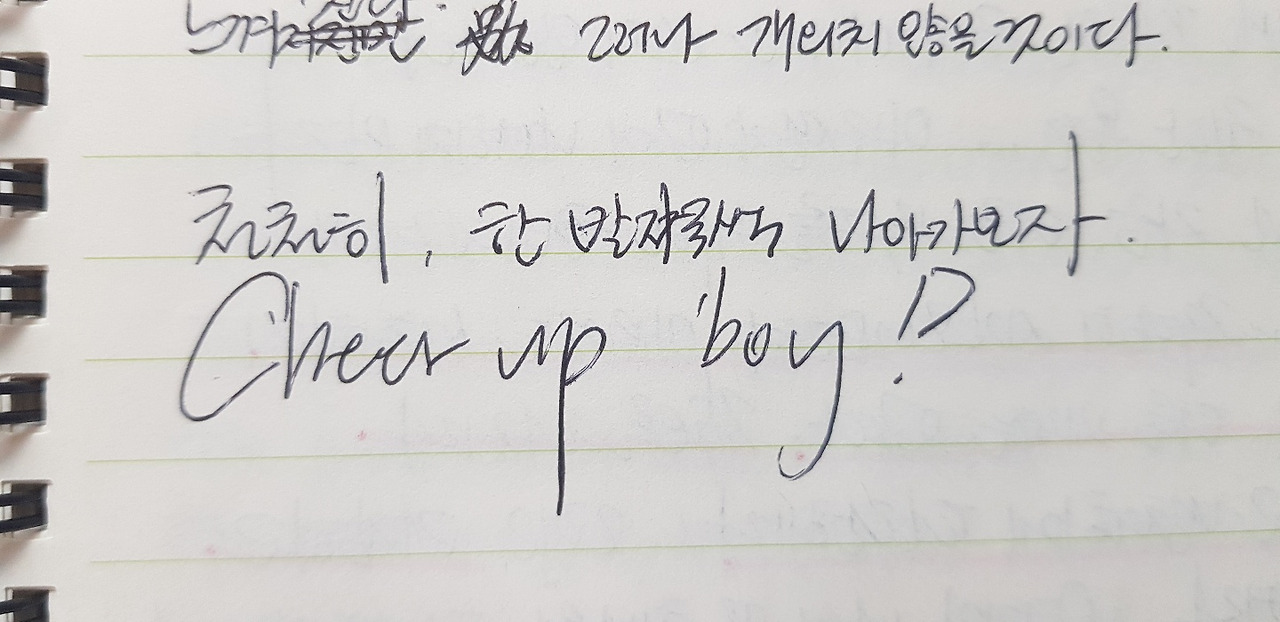 그러나 개의치 않을 것이다.
천천히, 한 발자욱씩 나아가보자.
Cheer up boy!